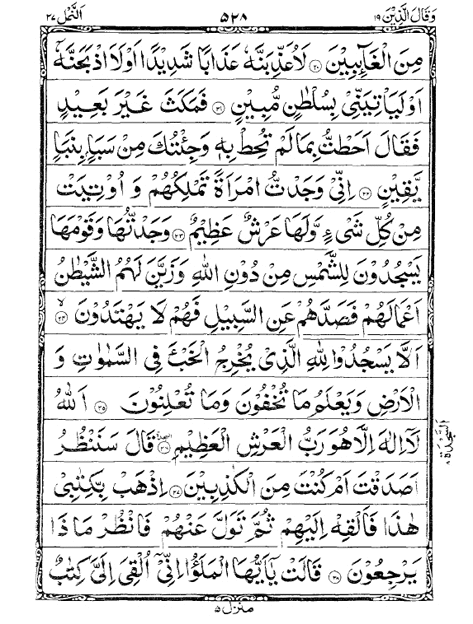 وَقَالَ الَّذِيْنَ ١٩ ٥٢٨ اَلنَّمْل ٢٧
مِنَ الْغَآىِٕبِيْنَ ﴿٢٠﴾ لَاُعَذِّبَنَّهٗ عَذَابًا شَدِيْدًا اَوْ لَاۡاَذْبَحَنَّهٗۤ
اَوْ لَيَاْتِيَنِّيْ بِسُلْطٰنٍ مُّبِيْنٍ ﴿٢١﴾ فَمَكَثَ غَيْرَ بَعِيْدٍ
فَقَالَ اَحَطْتُّ بِمَا لَمْ تُحِطْ بِهٖ وَجِئْتُكَ مِنْ سَبَاٍۭ بِنَبَاٍ
يَّقِيْنٍ ﴿٢٢﴾ اِنِّيْ وَجَدْتُّ امْرَاَةً تَمْلِكُهُمْ وَ اُوْتِيَتْ
مِنْ كُلِّ شَيْءٍ وَّلَهَا عَرْشٌ عَظِيْمٌ ﴿٢٣﴾ وَجَدْتُّهَا وَقَوْمَهَا
يَسْجُدُوْنَ لِلشَّمْسِ مِنْ دُوْنِ اللّٰهِ وَزَيَّنَ لَهُمُ الشَّيْطٰنُ
اَعْمَالَهُمْ فَصَدَّهُمْ عَنِ السَّبِيْلِ فَهُمْ لَا يَهْتَدُوْنَ ﴿٢٤﴾ لا
اَلَّا يَسْجُدُوْا لِلّٰهِ الَّذِيْ يُخْرِجُ الْخَبْءَ فِي السَّمٰوٰتِ وَ
الْاَرْضِ وَيَعْلَمُ مَا تُخْفُوْنَ وَمَا تُعْلِنُوْنَ ﴿٢٥﴾ اَللّٰهُ
لَاۤ اِلٰهَ اِلَّا هُوَ رَبُّ الْعَرْشِ الْعَظِيْمِ ﴿٢٦﴾ قَالَ سَنَنْظُرُ
اَصَدَقْتَ اَمْ كُنْتَ مِنَ الْكٰذِبِيْنَ ﴿٢٧﴾ اِذْهَبْ بِّكِتٰبِيْ
هٰذَا فَاَلْقِهْ اِلَيْهِمْ ثُمَّ تَوَلَّ عَنْهُمْ فَانْظُرْ مَاذَا
يَرْجِعُوْنَ ﴿٢٨﴾ قَالَتْ يٰۤاَيُّهَا الْمَلَؤُا اِنِّيْۤ اُلْقِيَ اِلَيَّ كِتٰبٌ
السجدة ٨
منزل ٥